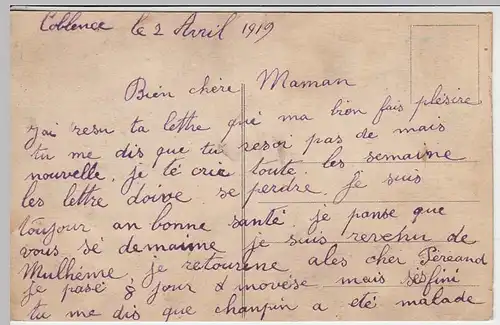 Coblence le 2 Avril 1919
Bien chère Maman
j'ai resu ta lettre qué ma bion fais plésire
tu me dis que tu resoi pas de mais
nouvelle. je té crie toute les semaine
les lettre doive se perdre. je suis
toujour an bonne santé. je panse que
vous sé demaime je suis revenu de
Mulhème, je retourine ales cher
je pasé 8 jour d movése mais sésfini
tu me dis que chanpin a été malade